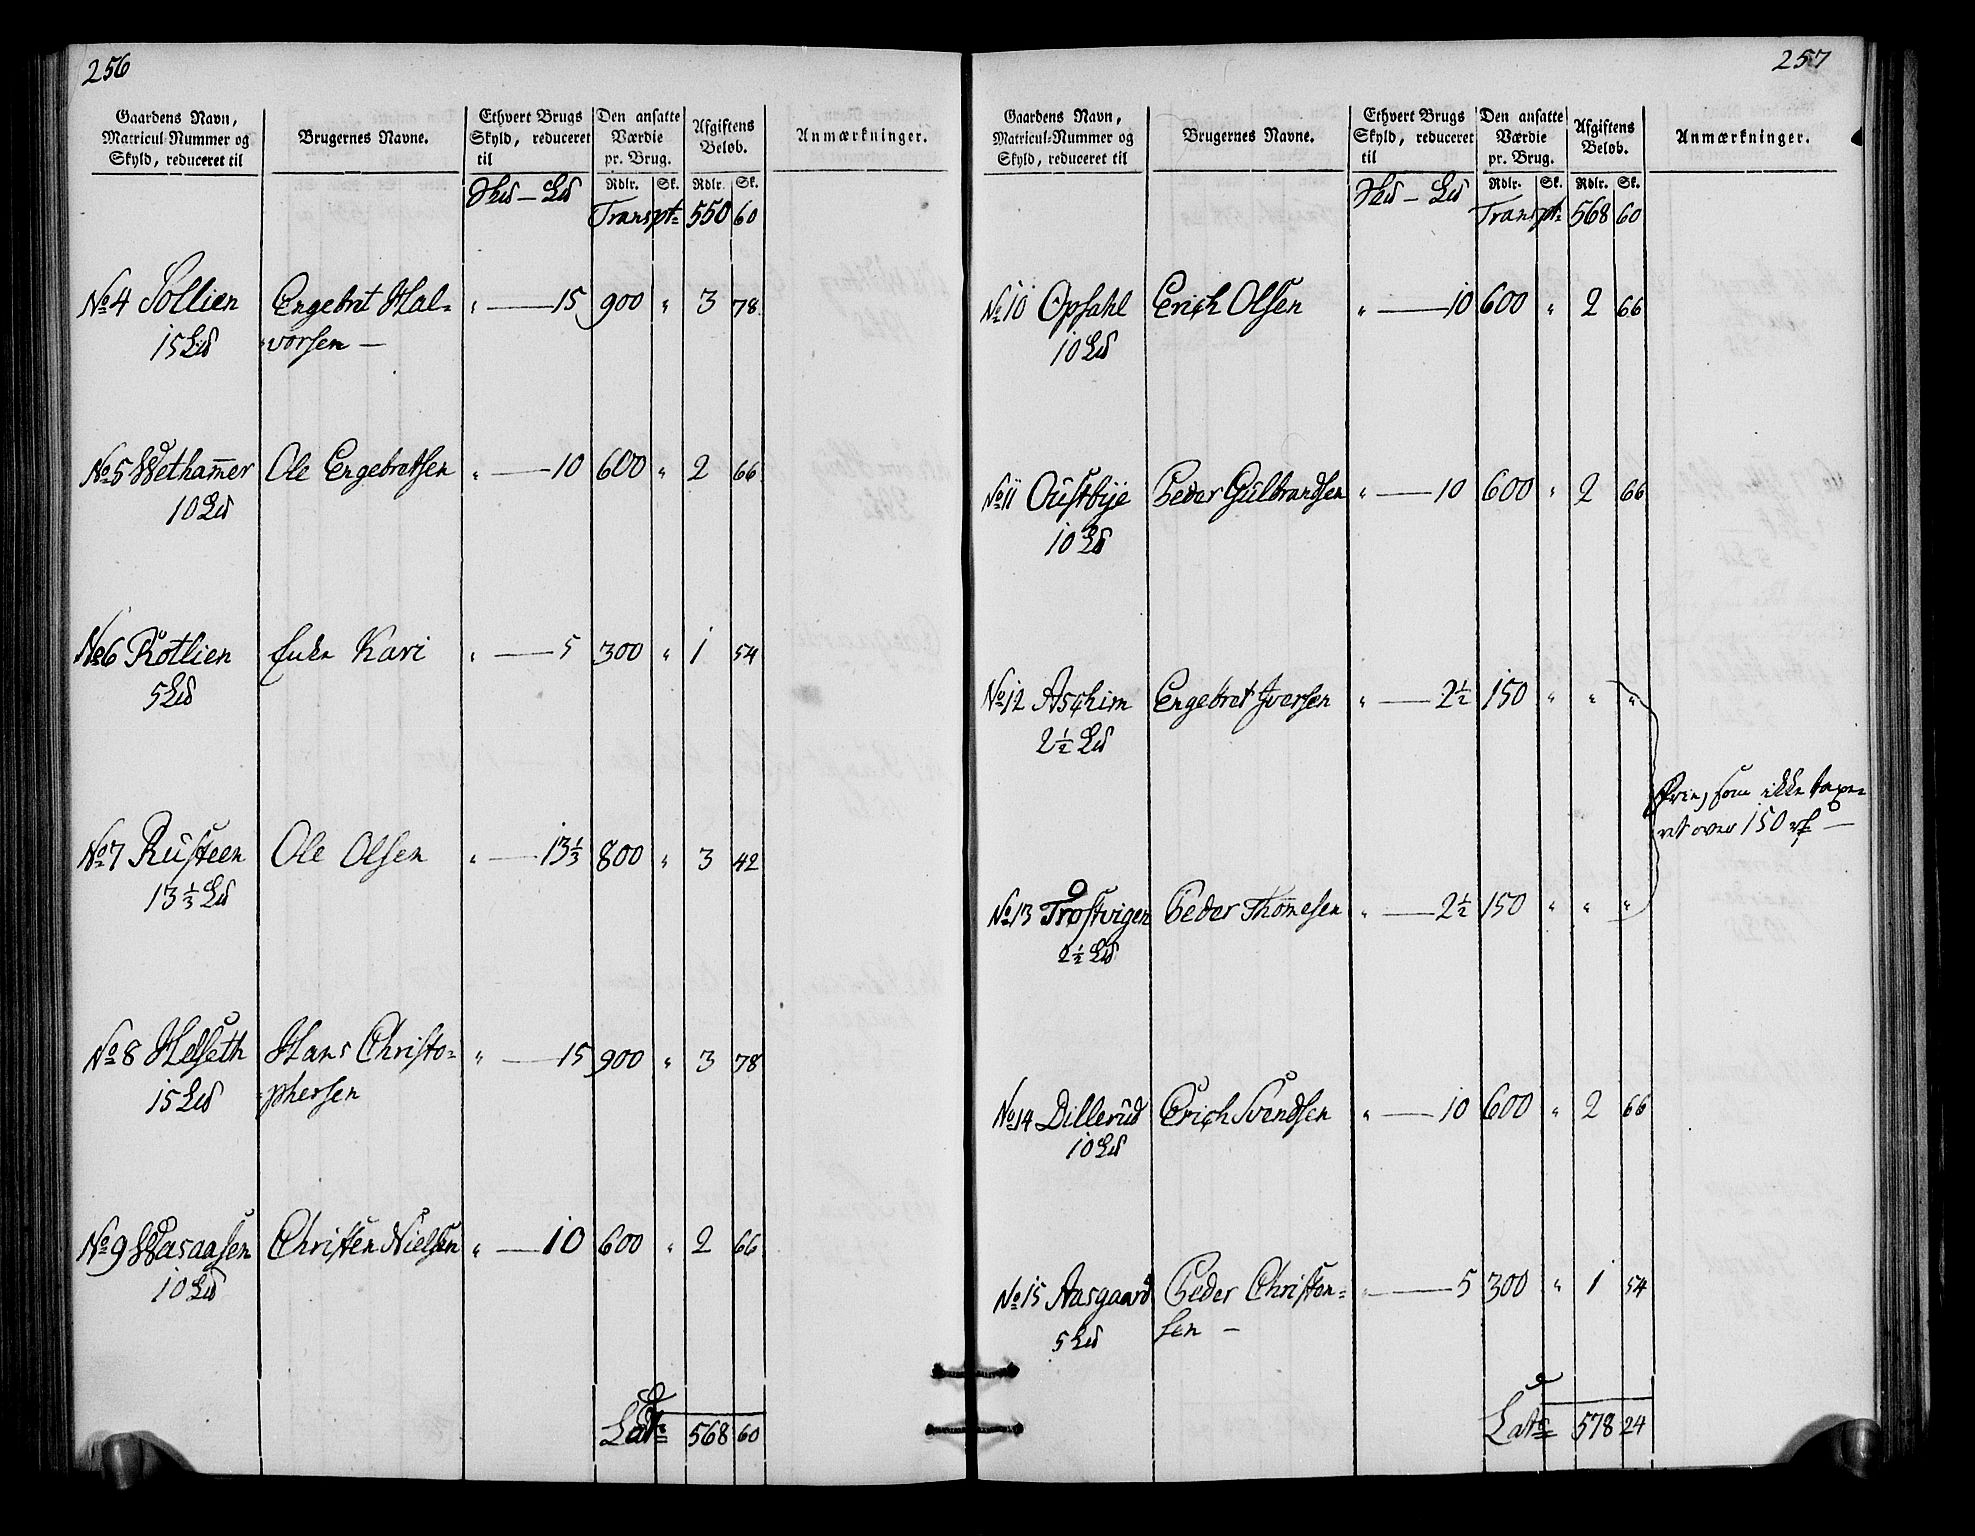 256
Gaardens Navn, Matricul-Nummer og Skyld, reduceret til
Brugernes Navne.
Ethvert Brugs Skyld, reduceret til
Den ansatte Værdie pr. Brug.
Afgiftens Beløb.
Anmærkninger.
Rdlr. Sk. Rdlr. Sk.
Hud — Ld
Transpt: 550 60
No 4 Sollien Engebret Hal- " — 15 900 " 3 78
15 Ld vorsen —
No 5 Wetham̄er Ole Engebretsen " — 10 600 " 2 66
10 Ld
No 6 Rotlien Enke Kari " — 5 300 " 1 54
5 Ld
No 7 Rusteen Ole Olsen " — 13⅓ 800 " 3 42
13⅓ Ld
No 8 Helseth Hans Christo= " — 15 900 " 3 78
15 Ld phersen
No 9 Wasaasen Christen Nielsen " — 10 600 " 2 66
10 Ld
Lat: 568 60
257
Gaardens Navn, Matricul-Nummer og Skyld, reduceret til
Brugernes Navne.
Ethvert Brugs Skyld, reduceret til
Den ansatte Værdie pr. Brug.
Afgiftens Beløb.
Anmærkninger.
Rdlr. Sk. Rdlr. Sk.
Hud — Ld
Transpt: 568 60
No 10 Opsahl Erich Olsen " — 10 600 " 2 66
10 Ld
No 11 Oustbye Peder Gulbrandsen " — 10 600 " 2 66
10 Ld
No 12 Aschim Engebret Iversen " — 2½ 150 " " "
2½ Ld
Frie, som ikke taxe=
ret over 150 rd —
No 13 Trostvigen Peder Thom̄esen " — 2½ 150 " " "
2½ Ld
No 14 Dillerud Erich Svendsen " — 10 600 " 2 66
10 Ld
No 15 Aasgaard Peder Christen= " — 5 300 " 1 54
5 Ld sen —
Lat: 578 24